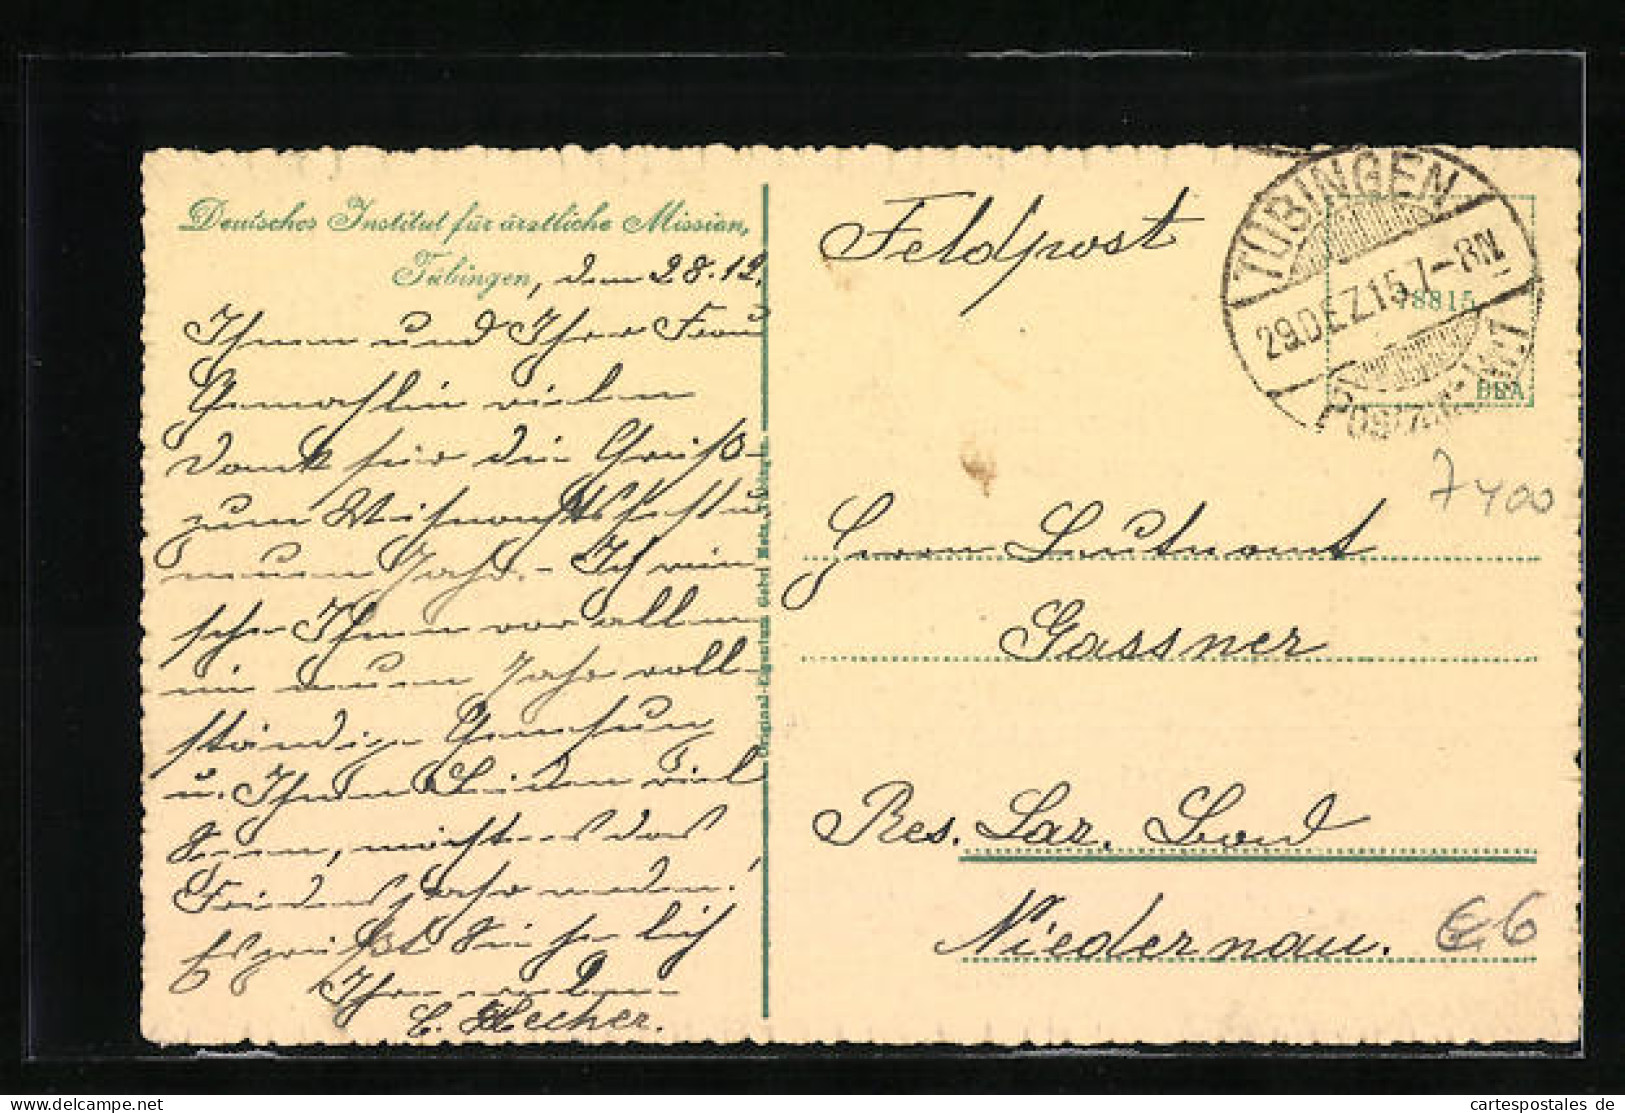 Deutsches Institut für ärztliche Mission,
Tübingen, den 28.12.
Ihnen und Ihrer Frau
Gemahlin vielen
Dank für die Grüße
zum Weihnachtsfest u.
neuen Jahr. – Ich wün
sche Ihnen vor allem
im neuen Jahr voll-
ständige Genesung
u. Ihrem Leiden viel
möchte es das
Friedensjahr werden!
Es grüßt Sie herzlich
Ihr
E. Hecher.
Original-Eigentum Gebr. Metz, Tübingen.
Feldpost
TÜBINGEN
29.DEZ.15.7-8N.
POSTAMT 1
78815
BPA
7400
Herrn Leutnant
Gassner
Res. Laz. Bad
Niedernau.
€ 6
The Best of Collections
cartespostales de